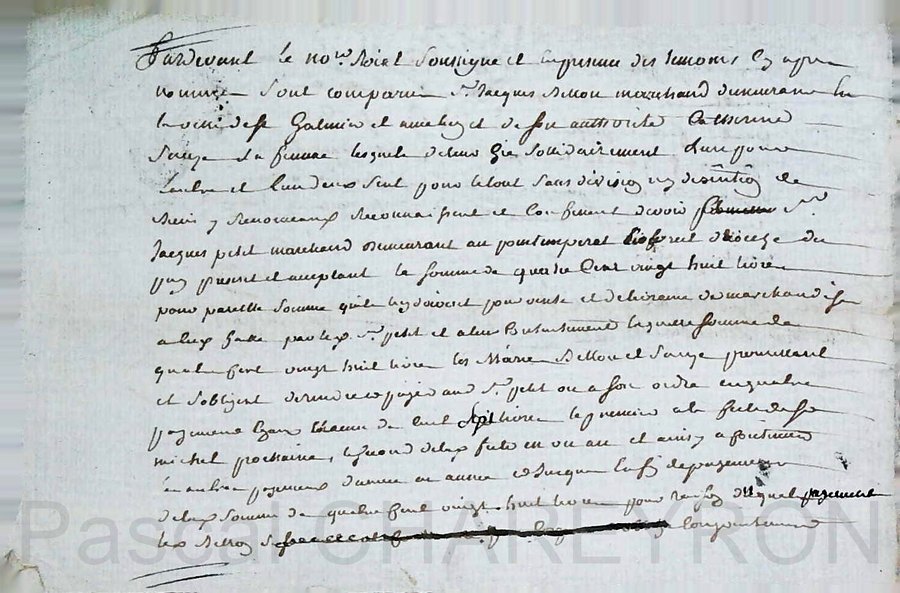 Pardevant le no.re Roial soussigné et en presence des temoins cy apres
nommés sont comparu s.r Jacques Bellon marchand demeurant en
la ville de st Galmier et avec luy et de son authorité Catherine
sa femme lesquels de leur gré solidairement l'un pour
l'autre et l'un deux seul pour le tout sans division ny discution de
biens y renonceant reconnaissent et confessent devoir s.r
Jacques petit marchand demurant au dioceze du
puy present et acceptant la somme de quatre cent vingt huit livres
pour pareille somme qu'ils luy doivent pour vente et delivrance de marchandise
a eux faite par led s.r petit et a leur contentement laquelle somme de
quatre cent vingt huit livres les mariés Bellon et promettent
et s'obligent de rendre et payer aud s.r petit ou a son ordre en quatre
payements egaux de cent sept livres le premier a la fete de st
michel prochaine, le second a lad fete en un an et ainsy a continuer
les autres payements d'annee en annee et jusques a la fin de payement
de lad somme de quatre cent vingt huit livres pour raison duquel payement
les Bellon
Pascal CHAREYRON